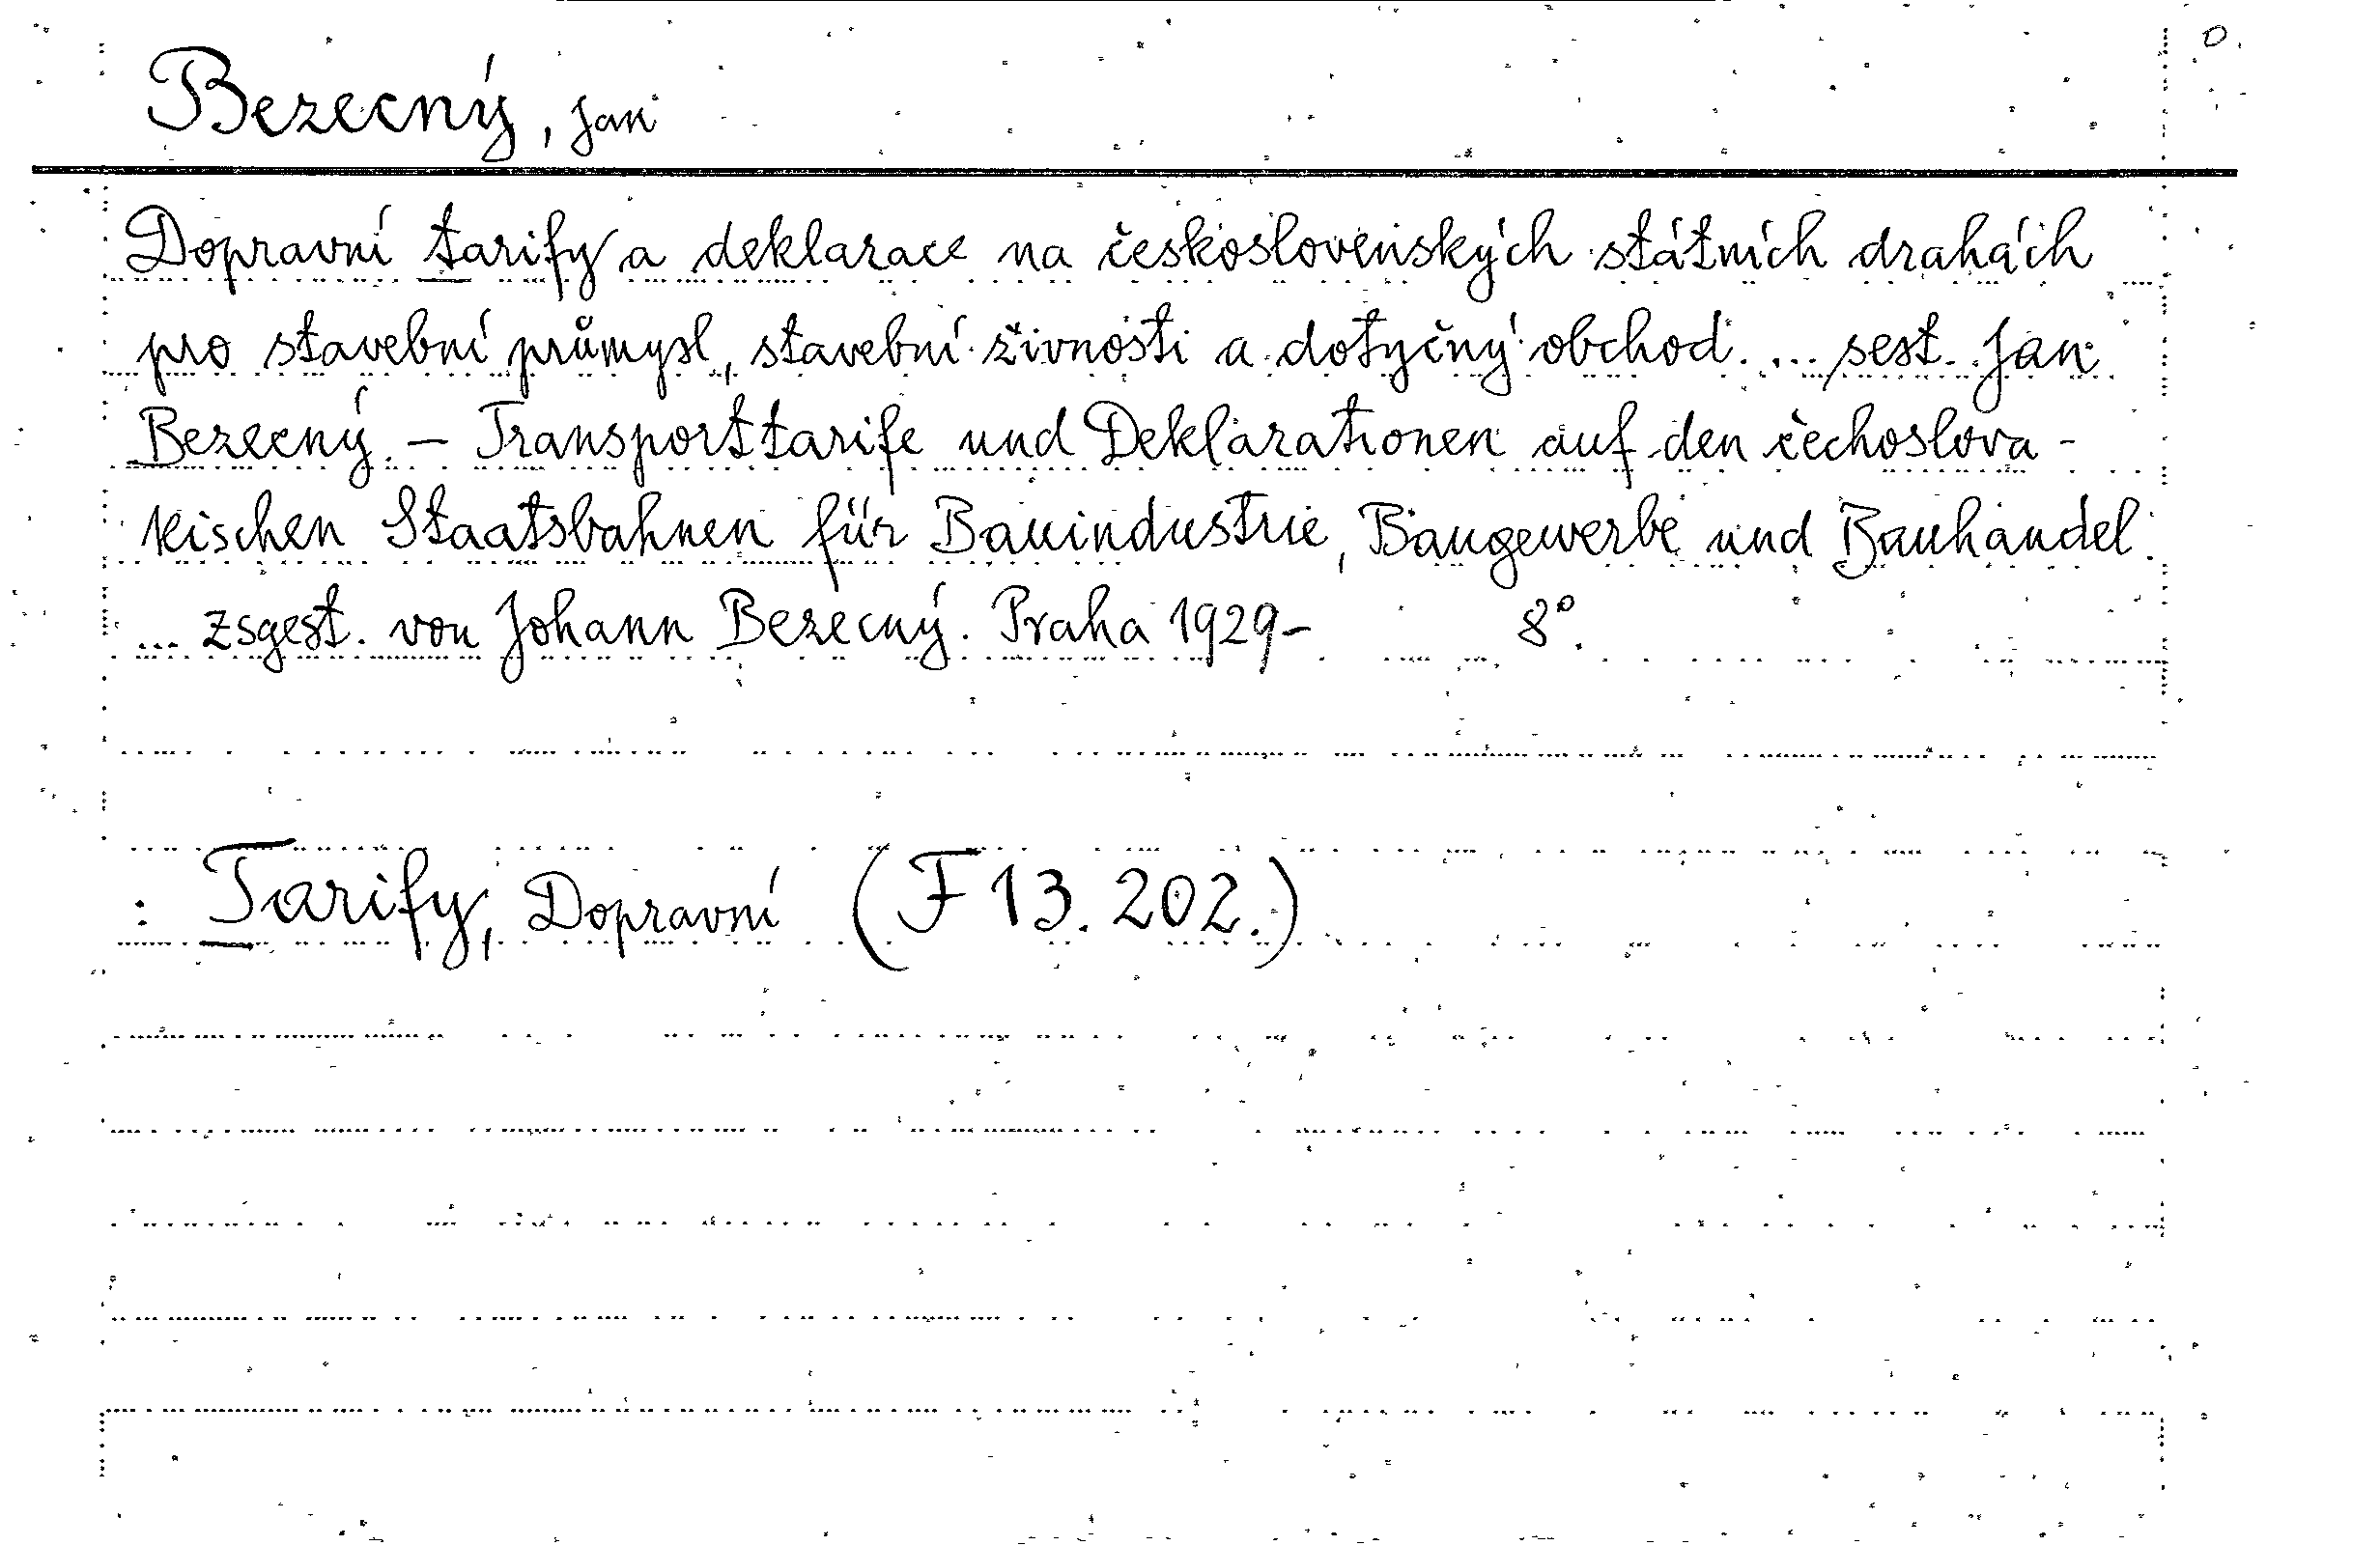 O.
Bezecný, Jan
Dopravní tarify a deklarace na československých státních drahách
pro stavební průmysl, stavební živnosti a dotyčný obchod. ... sest. Jan
Bezecný. – Transporttarife und Deklarationen auf den čechoslova-
kischen Staatsbahnen für Bauindustrie, Baugewerbe und Bauhandel.
... zsgest. von Johann Bezecný. Praha 1929– 8°.
: Tarify, Dopravní (F 13.202.)